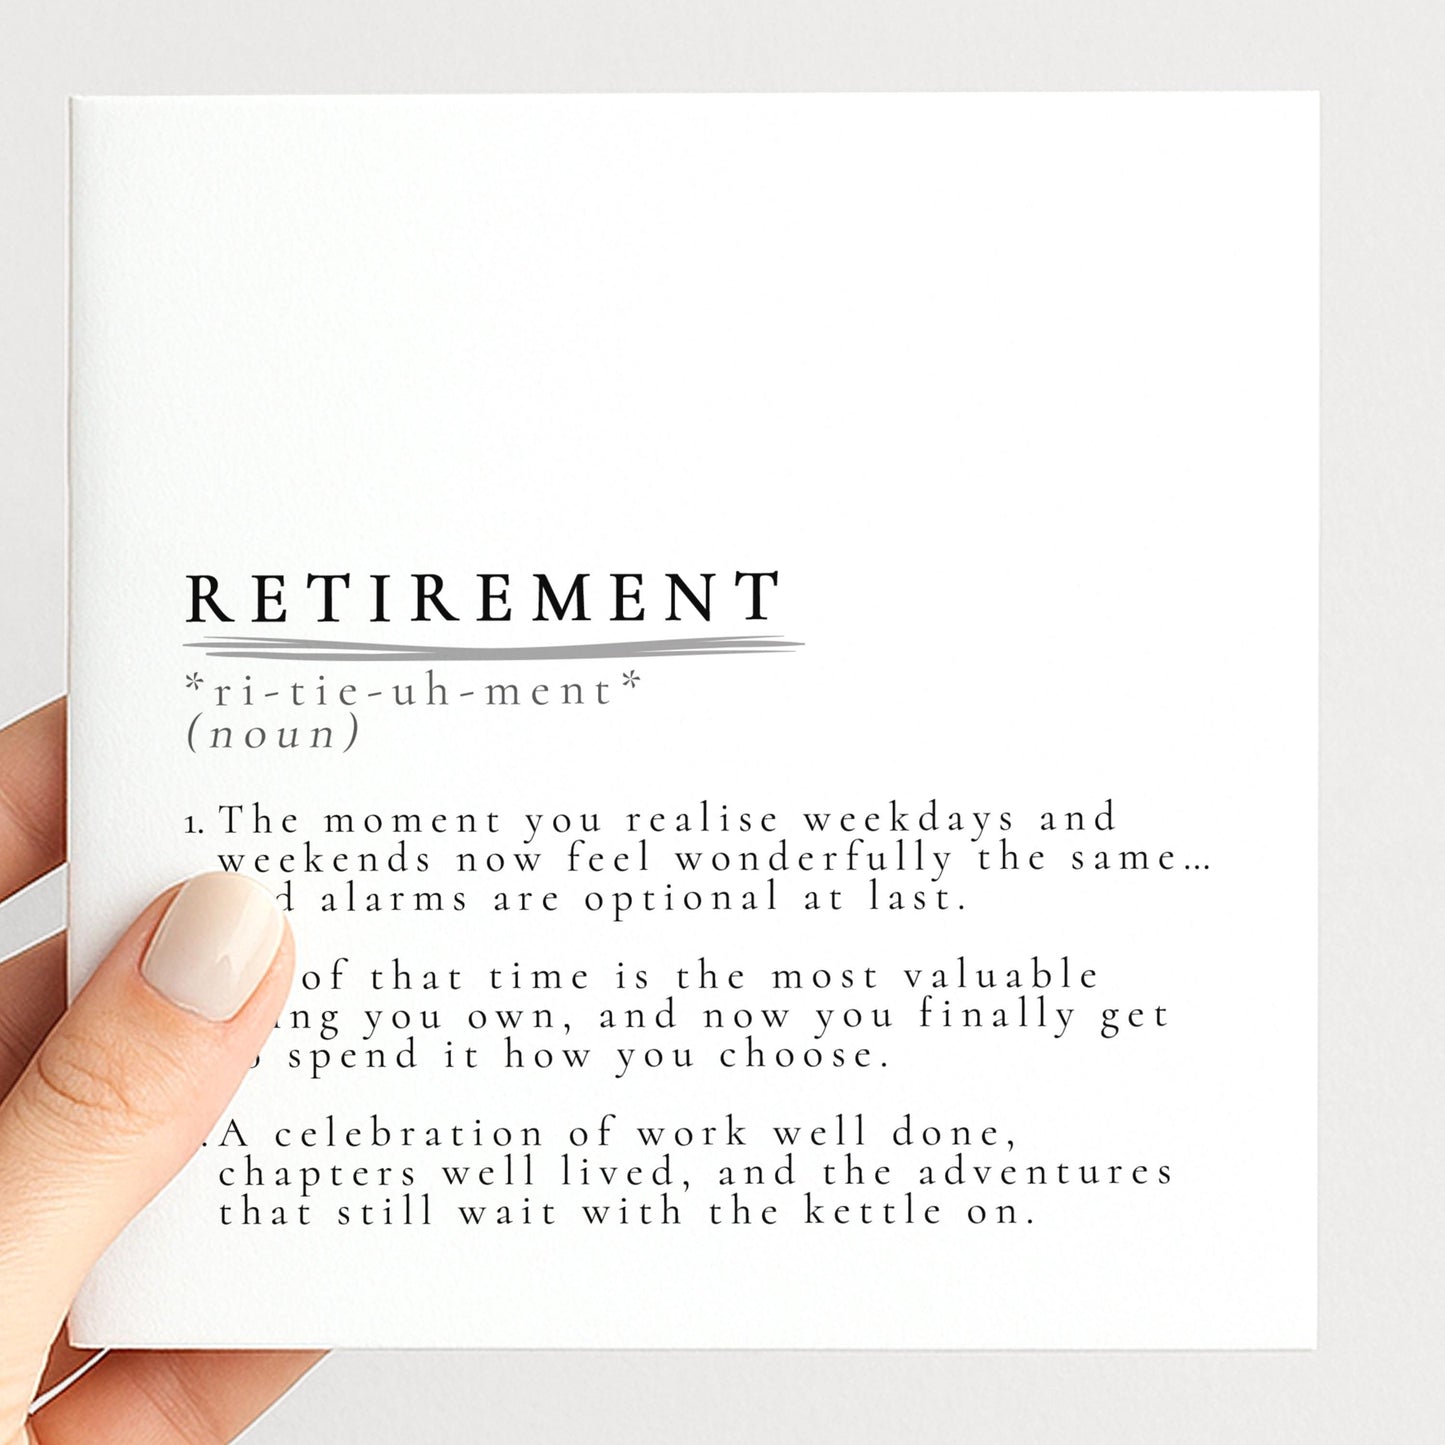 RETIREMENT
*ri-tie-uh-ment*
(noun)
1. The moment you realise weekdays and
weekends now feel wonderfully the same...
alarms are optional at last.
of that time is the most valuable
you own, and now you finally get
spend it how you choose.
A celebration of work well done,
chapters well lived, and the adventures
that still wait with the kettle on.